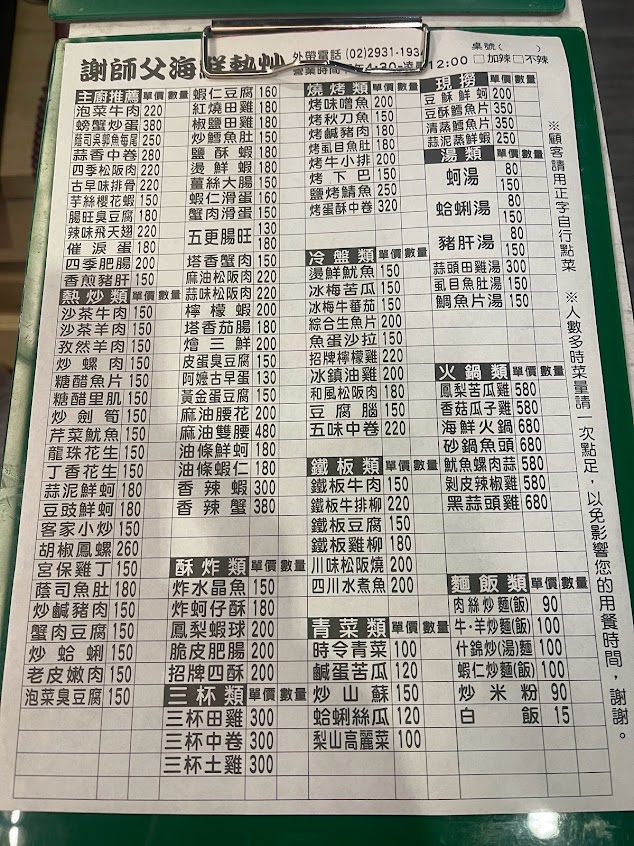 謝師父海鮮熱炒
外帶電話 (02)2931-193
4:30-凌晨12:00
桌號( )
□加辣□不辣
主廚推薦 單價 數量
泡菜牛肉 220
螃蟹炒蛋 380
蒜香中卷 280
四季松阪肉 220
古早味排骨 220
芋絲櫻花蝦 150
腸旺臭豆腐 180
辣味飛天翅 220
催淚蛋 180
四季肥腸 200
香煎豬肝 150
熱炒類 單價 數量
沙茶牛肉 150
沙茶羊肉 150
孜然羊肉 150
炒螺肉 150
糖醋魚片 150
糖醋里肌 150
炒劍筍 150
芹菜魷魚 150
龍珠花生 150
丁香花生 150
蒜泥鮮蚵 180
豆豉鮮蚵 180
客家小炒 150
胡椒鳳螺 260
宮保雞丁 150
蔭司魚肚 180
炒鹹豬肉 150
蟹肉豆腐 150
炒蛤蜊 150
老皮嫩肉 150
泡菜臭豆腐 150
蝦仁豆腐 160
紅燒田雞 180
椒鹽田雞 180
炒鱈魚肚 150
鹽酥蝦 180
燙鮮蝦 180
薑絲大腸 150
蝦仁滑蛋 160
蟹肉滑蛋 150
五更腸旺 130
180
塔香蟹肉 150
麻油松阪肉 220
蒜味松阪肉 220
檸檬蝦 200
塔香茄腸 180
燴三鮮 200
皮蛋臭豆腐 150
阿嬤古早蛋 130
黃金蛋豆腐 150
麻油腰花 200
麻油雙腰 480
油條鮮蚵 180
油條蝦仁 180
香辣蝦 300
香辣蟹 380
酥炸類 單價 數量
炸水晶魚 150
炸蚵仔酥 180
鳳梨蝦球 200
脆皮肥腸 200
招牌四酥 200
三杯類 單價 數量
三杯田雞 300
三杯中卷 300
三杯土雞 300
燒烤類 單價 數量
烤味噌魚 200
烤秋刀魚 150
烤鹹豬肉 180
烤虱目魚肚 180
烤牛小排 200
烤下巴 150
鹽烤鯖魚 250
烤蛋酥中卷 320
冷盤類 單價 數量
燙鮮魷魚 150
冰梅苦瓜 150
冰梅牛番茄 150
綜合生魚片 200
魚蛋沙拉 150
招牌檸檬雞 220
冰鎮油雞 200
和風松阪肉 180
豆腐腦 150
五味中卷 220
鐵板類 單價 數量
鐵板牛肉 150
鐵板牛排柳 220
鐵板豆腐 150
鐵板雞柳 180
川味松阪燒 200
四川水煮魚 200
青菜類 單價 數量
時令青菜 100
鹹蛋苦瓜 120
炒山蘇 150
蛤蜊絲瓜 120
梨山高麗菜 100
現撈 單價 數量
豆酥鮮蚵 200
豆酥鱈魚片 350
清蒸鱈魚片 350
蒜泥蒸鮮蝦 250
湯類 單價 數量
蚵湯 80
150
蛤蜊湯 80
150
豬肝湯 80
150
蒜頭田雞湯 300
虱目魚肚湯 150
鯛魚片湯 150
火鍋類 單價 數量
鳳梨苦瓜雞 580
香菇瓜子雞 580
海鮮火鍋 680
砂鍋魚頭 680
魷魚螺肉蒜 580
剝皮辣椒雞 580
黑蒜頭雞 680
麵飯類 單價 數量
肉絲炒麵(飯) 90
牛·羊炒麵(飯) 100
什錦炒(湯)麵 100
蝦仁炒麵(飯) 100
炒米粉 90
白飯 15
※顧客請用正字自行點菜
※人數多時菜量請一次點足，以免影響您的用餐時間，謝謝。